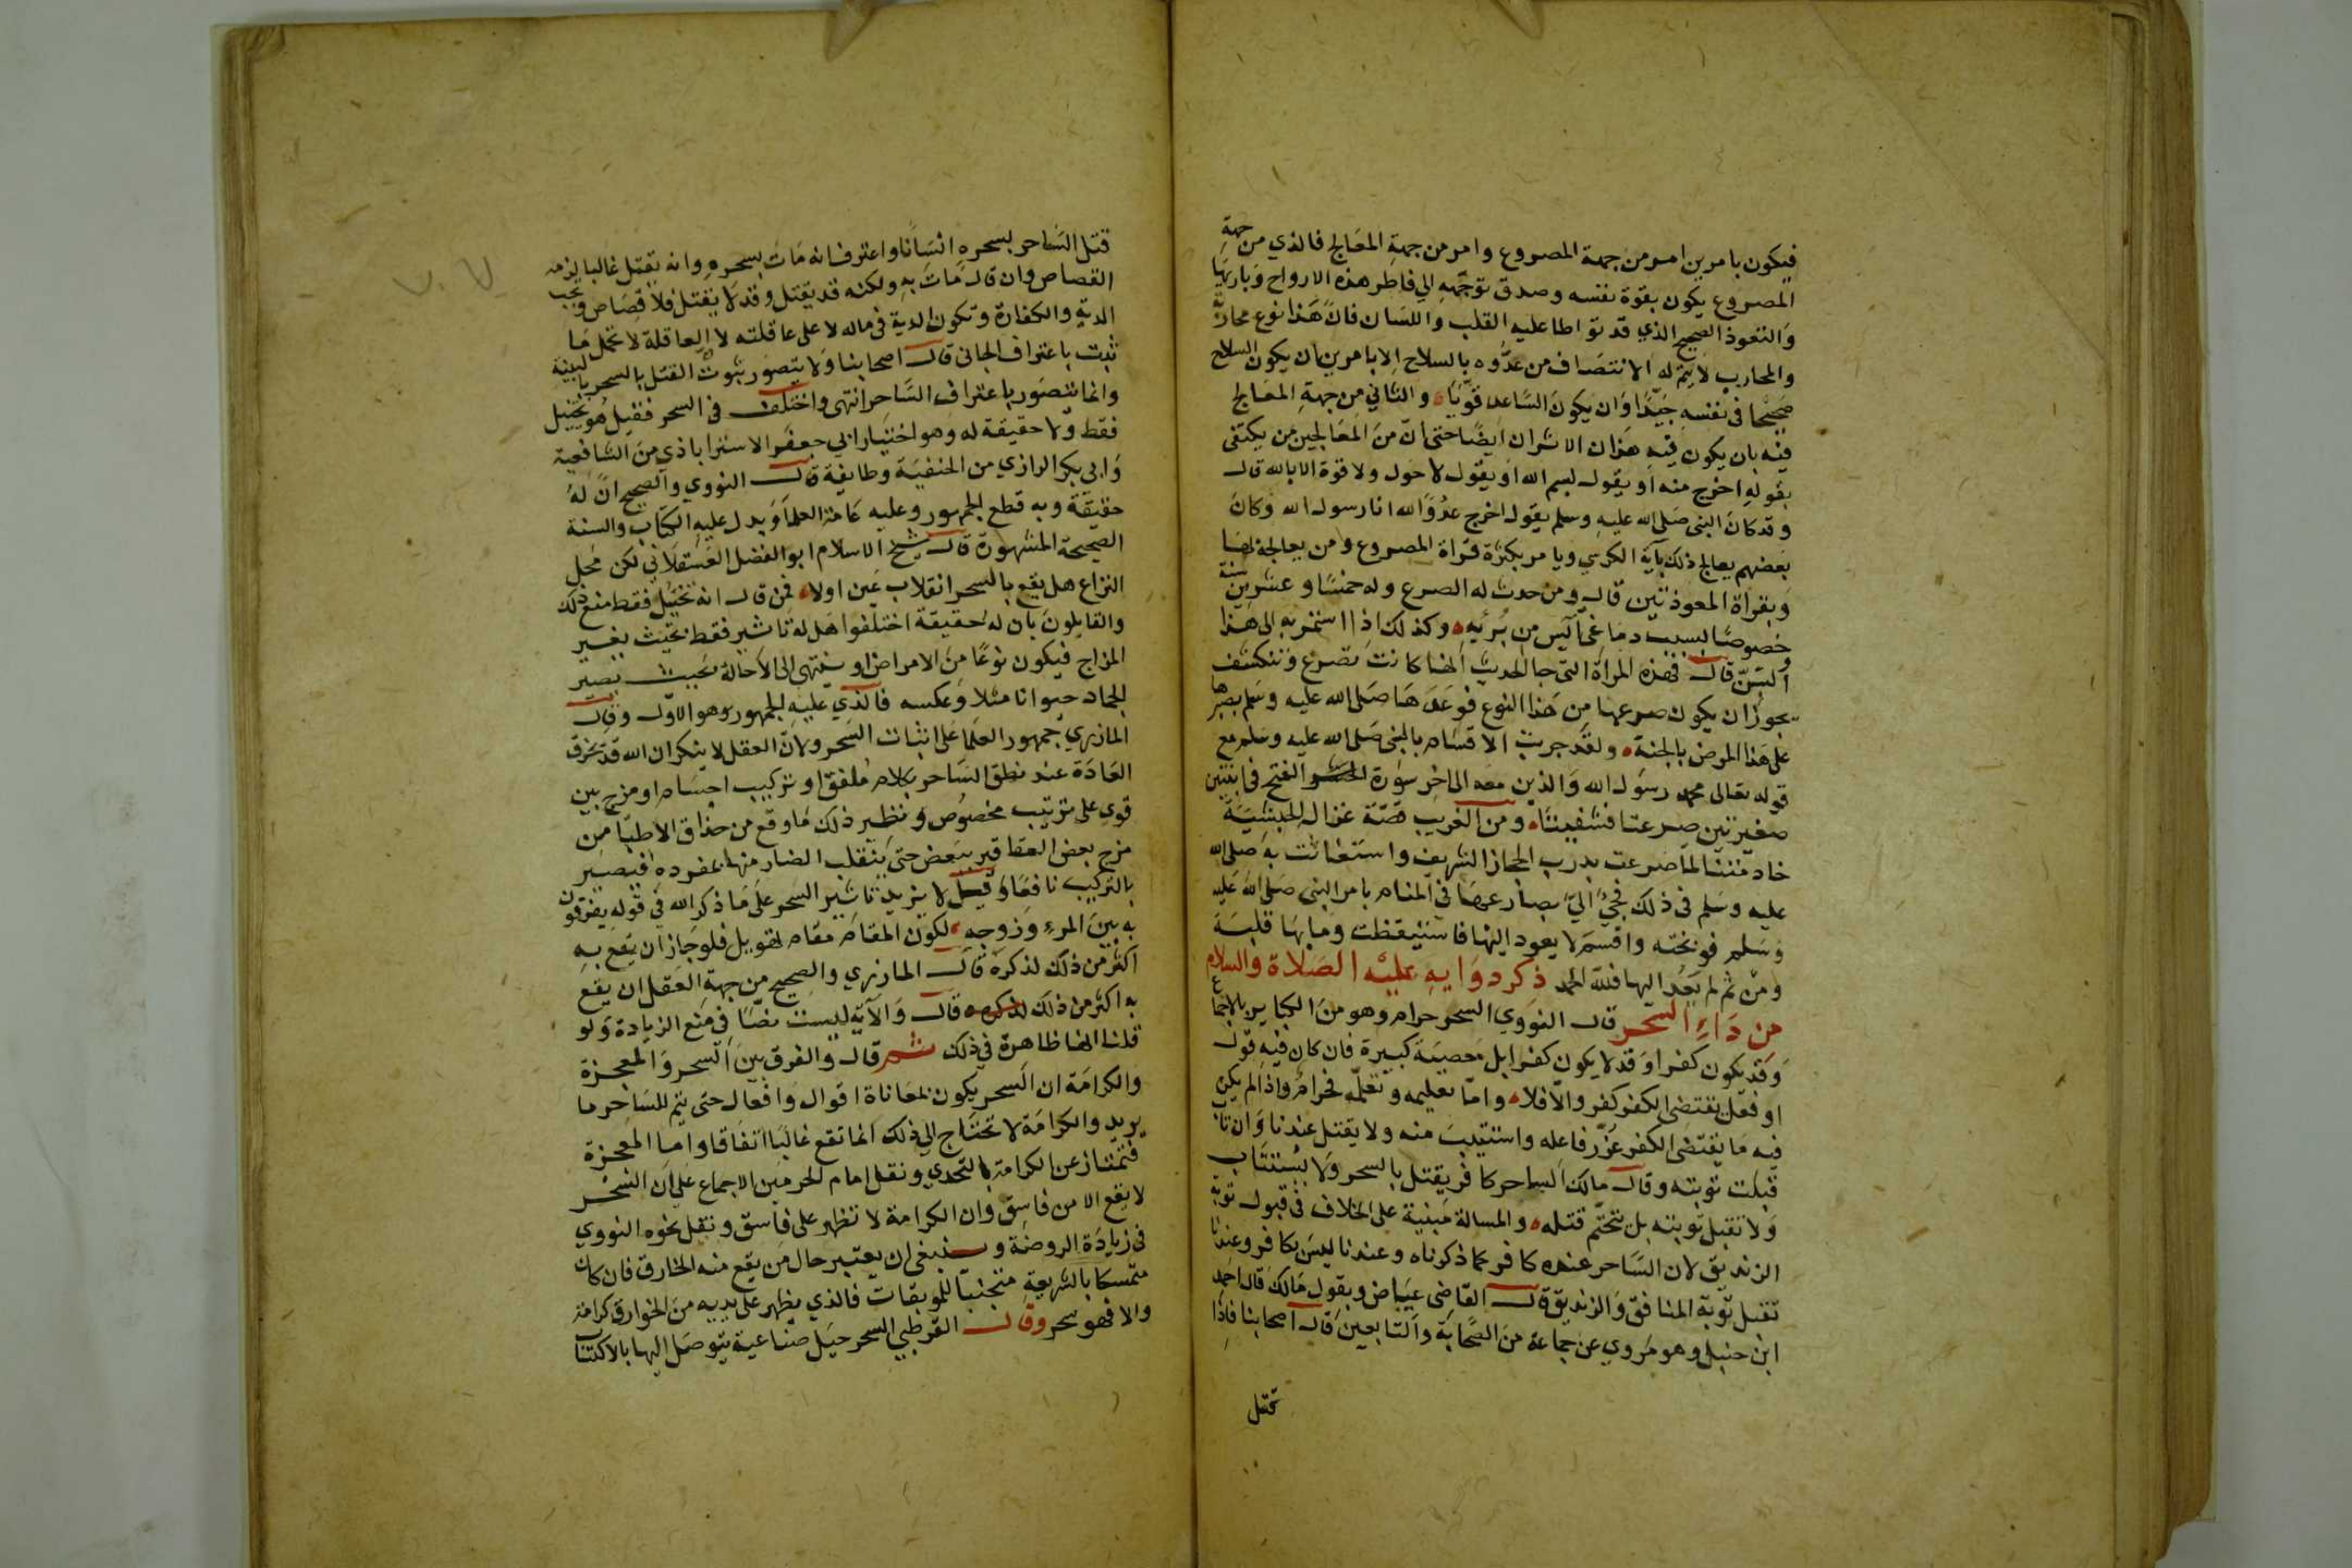 فيكون بامرين امر من جهة المصروع وامر من جهة المعالج فالذي من جهة
المصروع يكون بقوة نفسه وصدق توجهه الي فاطر هذه الارواح وباريها
والتعوذ الصحيح الذي قد تواطا عليه القلب واللسان فان هذا نوع محاربة
والمحارب لا يتم له الانتصاف من عدوه بالسلاح الا بامرين ان يكون السلاح
صحيحا في نفسه جيدا وان يكون الساعد قويا والثاني من جهة المعالج
فيه بان يكون فيه هذان الاشران ايضا حتى ان من المعالجين من يكتفى
بقوله اخرج منه او يقول بسم الله او يقول لا حول ولا قوة الا بالله قال
وقد كان النبي صلى الله عليه وسلم يقول اخرج عدو الله انا رسول الله وكان
بعضهم يعالج ذلك بآية الكرسي ويامر بكثرة قراة المصروع ومن يعالجه لها
وبقراة المعوذتين قال ومن حدث له الصرع وله خمسا وعشرين سنة
خصوصا بسبب دماغي آيس من برئه وكذلك اذا استمر به الى هذا
السن قال فهذه المراة التي جا الحديث انها كانت تصرع وتتكشف
يجوز ان يكون صرعها من هذا النوع فوعدها صلى الله عليه وسلم بصبرها
على هذا المرض بالجنة ولقد جربت الاقسام بالنبي صلى الله عليه وسلم مع
قوله تعالى محمد رسول الله والذين معه الى اخر سورة الفتح في ابنتين
صغيرتين صرعتا فشفيتا ومن الغريب قصة غزال الحبشية
خادمتنا لما صرعت بدرب الحجاز الشريف واستغاثت به صلى الله
عليه وسلم في ذلك فجئ الي بصارعها في المنام بامر النبي صلى الله عليه
وسلم فوبخته واقسم لا يعود اليها فاستيقظت وما بها قلبة
ومن ثم لم يعد اليها فلله الحمد ذكر دوايه عليه الصلاة والسلام
من داء السحر قال النووي السحر حرام وهو من الكباير بالاجماع
وقد يكون كفرا وقد لا يكون كفرا بل معصية كبيرة فان كان فيه قول
او فعل يقتضي الكفر كفر والا فلا واما تعليمه وتعلمه فحرام واذا لم يكن
فيه ما يقتضي الكفر عزر فاعله واستتيب منه ولا يقتل عندنا وان تاب
قبلت توبته وقال مالك الساحر كافر يقتل بالسحر ولا يستتاب
ولا تقبل توبته بل يتحتم قتله والمسالة مبنية على الخلاف في قبول توبة
الزنديق لان الساحر عنده كافر كما ذكرناه وعندنا ليس بكافر وعندنا
تقبل توبة المنافق والزنديق قال القاضي عياض وبقول مالك قال احمد
ابن حنبل وهو مروي عن جماعة من الصحابة والتابعين قال اصحابنا فاذا
قتل
قتل الساحر بسحره انسانا واعترف انه مات بسحره وانه يقتل غالبا لزمه
القصاص وان قال مات به ولكنه قد يقتل وقد لا يقتل فلا قصاص وتجب
الدية والكفارة وتكون الدية في ماله لا على عاقلته لان العاقلة لا تحمل ما
ثبت باعتراف الجاني قال اصحابنا ولا يتصور ثبوت القتل بالسحر بالبينة
وانما يتصور باعتراف الساحر انتهى واختلف في السحر فقيل هو تخييل
فقط ولا حقيقة له وهو اختيار ابي جعفر الاستراباذي من الشافعية
وابي بكر الرازي من الحنفية وطايفة قال النووي والصحيح ان له
حقيقة وبه قطع الجمهور وعليه عامة العلما ويدل عليه الكتاب والسنة
الصحيحة المشهورة قال شيخ الاسلام ابو الفضل العسقلاني لكن محل
النزاع هل يقع بالسحر انقلاب عين او لا فمن قال انه تخيل فقط منع ذلك
والقايلون بان له حقيقة اختلفوا هل له تاثير فقط بحيث يغير
المزاج فيكون نوعا من الامراض او ينتهي الى الاحالة بحيث يصير
الجماد حيوانا مثلا وعكسه فالذي عليه الجمهور هو الاول وقال
المازري جمهور العلما على اثبات السحر ولان العقل لا ينكر ان الله قد يخرق
العادة عند نطق الساحر بكلام ملفق او تركيب اجسام او مزج بين
قوي على ترتيب مخصوص ونظير ذلك ما وقع من حذاق الاطبا من
مزج بعض العقاقير ببعض حتى ينقلب الضار منها بمفرده فيصير
بالتركيب نافعا وقيل لا يزيد تاثير السحر على ما ذكر الله في قوله يفرقون
به بين المرء وزوجه لكون المقام مقام تهويل فلو جاز ان يقع به
اكثر من ذلك لذكره قال المازري والصحيح من جهة العقل ان يقع
به اكثر من ذلك قال والآية ليست نصا في منع الزيادة ولو
قلنا انها ظاهرة في ذلك ثم قال والفرق بين السحر والمعجزة
والكرامة ان السحر يكون بمعاناة اقوال وافعال حتى يتم للساحر ما
يريد والكرامة لا تحتاج الى ذلك انما تقع غالبا اتفاقا واما المعجزة
فتمتاز عن الكرامة بالتحدي ونقل امام الحرمين الاجماع على ان السحر
لا يقع الا من فاسق وان الكرامة لا تظهر على فاسق ونقل نحوه النووي
في زيادة الروضة وينبغي ان يعتبر حال من يقع منه الخارق فان كان
متمسكا بالشريعة متجنبا للموبقات فالذي يظهر على يديه من الخوارق كرامة
والا فهو سحر وقال القرطبي السحر حيل صناعية يتوصل اليها بالاكتساب